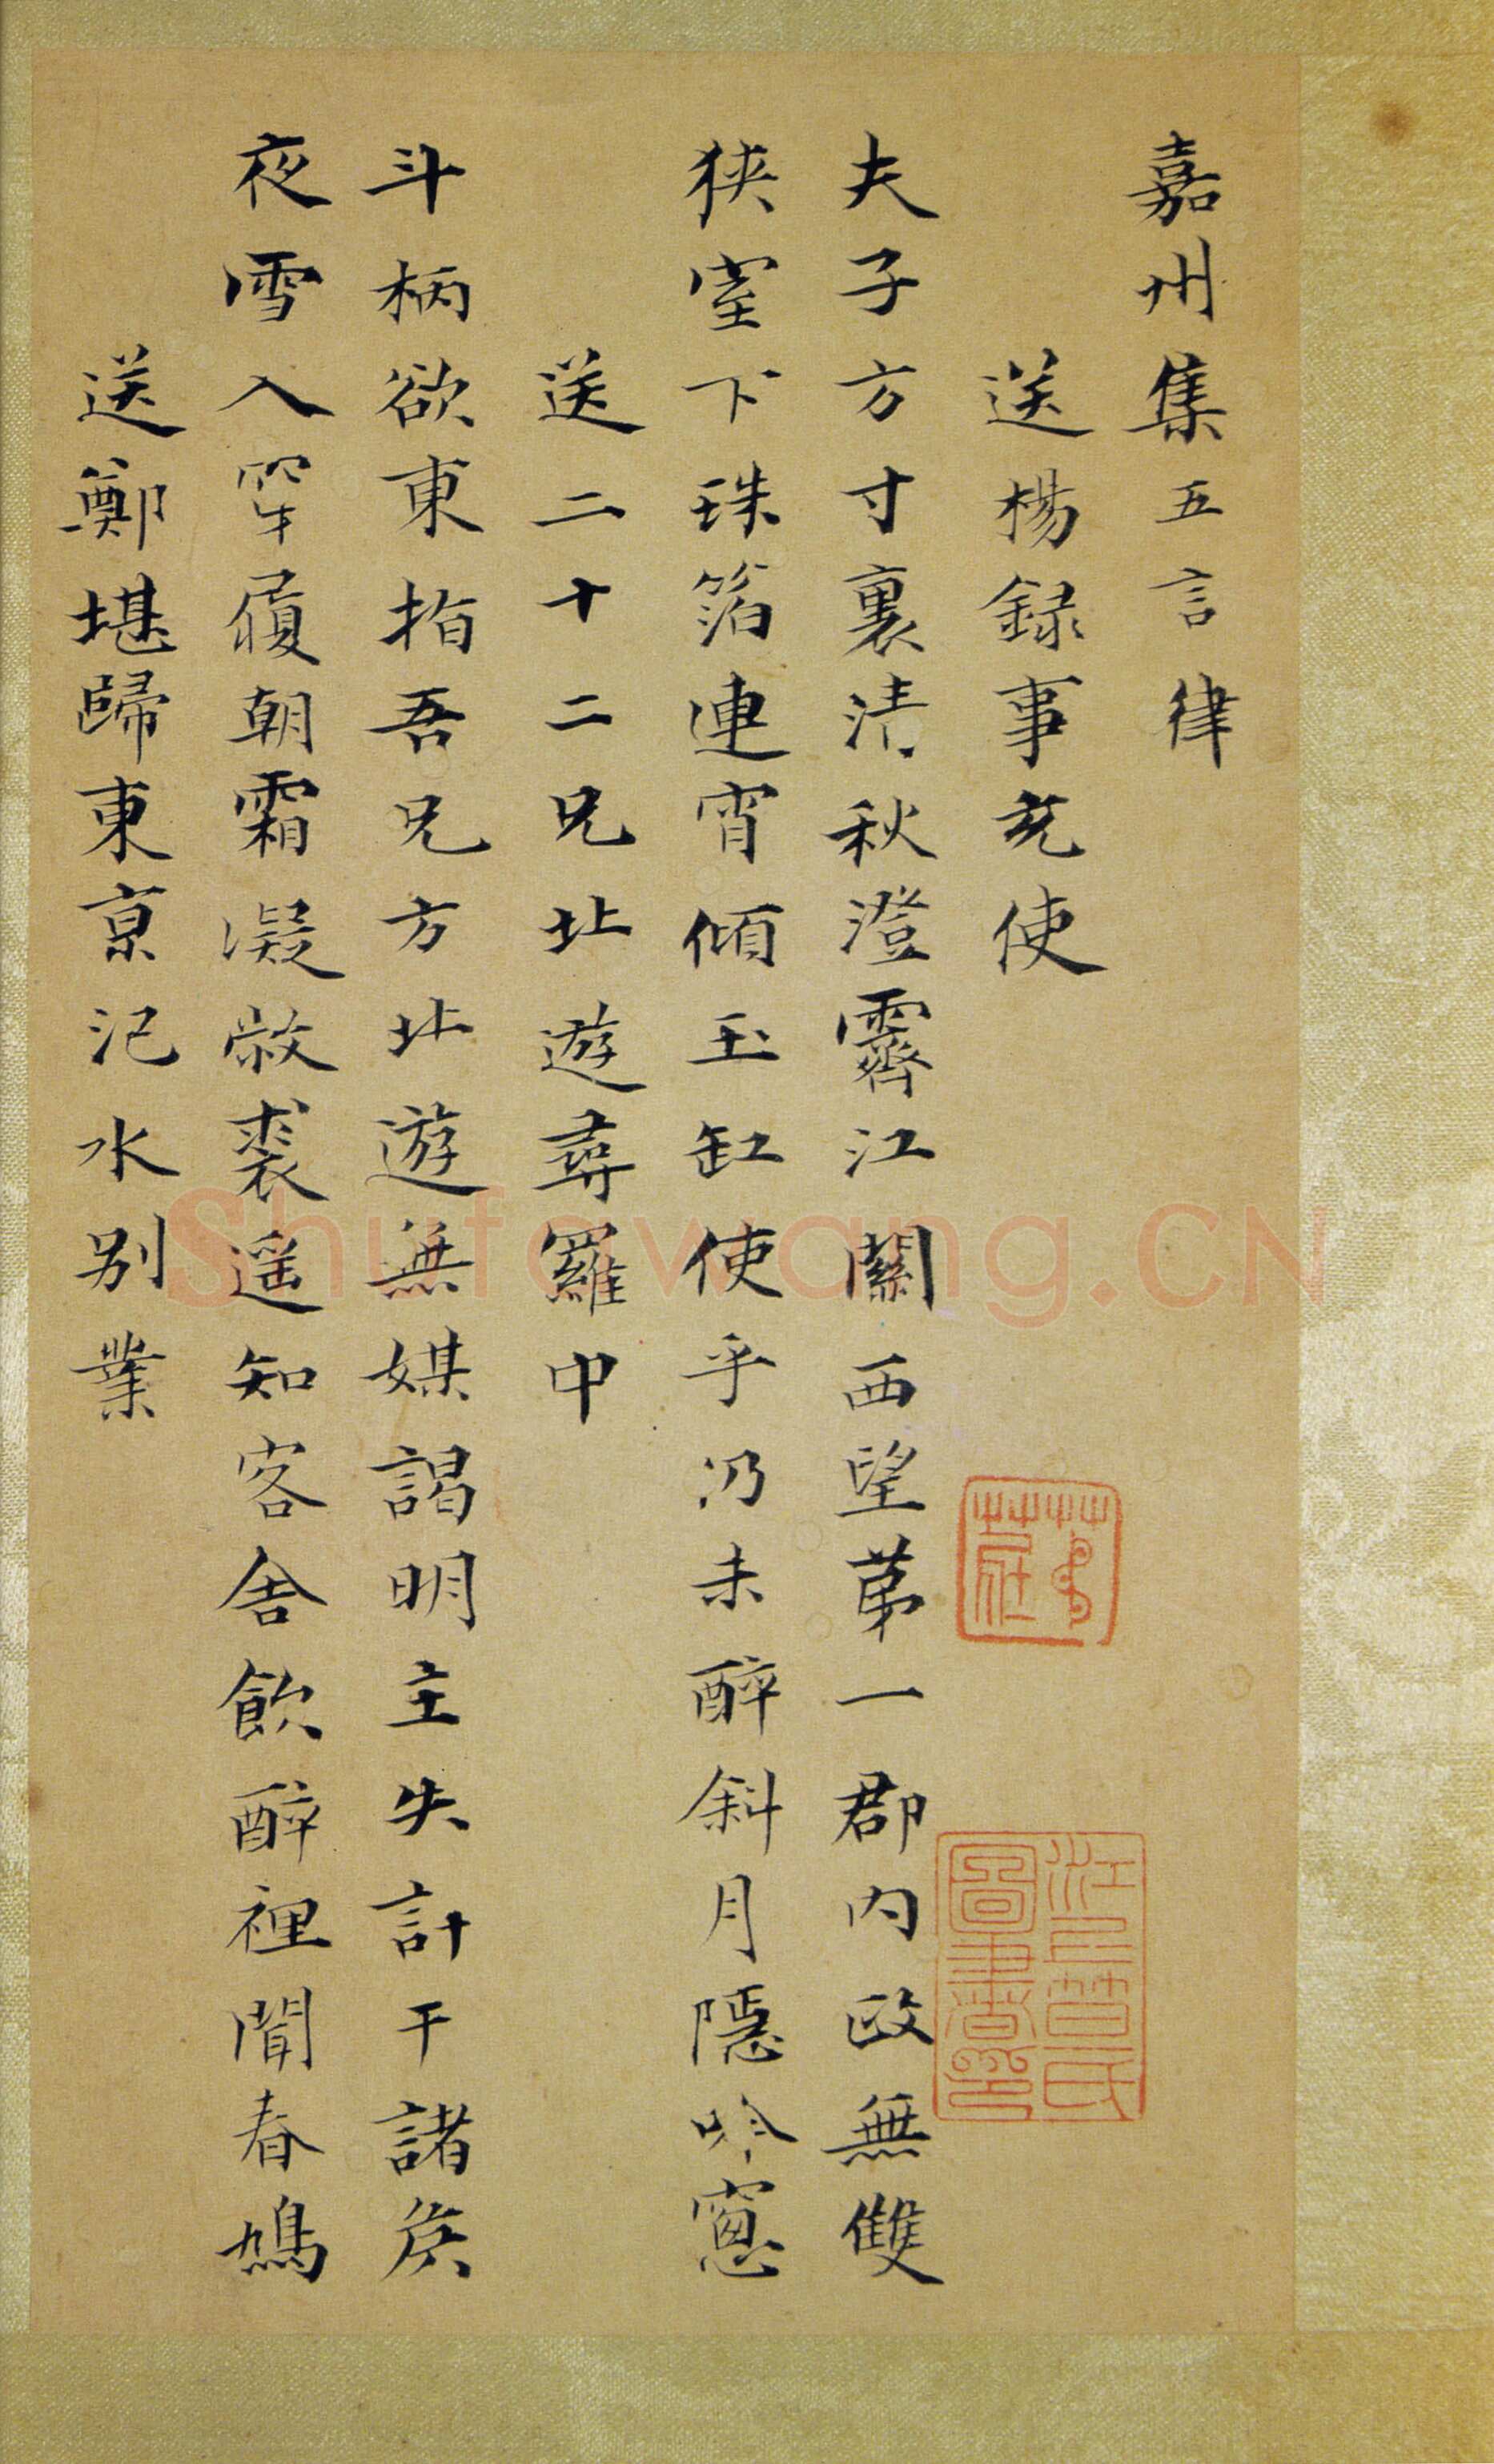 嘉州集五言律
送楊録事充使
夫子方寸裏清秋澄霽江關西望苐一郡内政無雙
狹室下珠箔連宵傾玉缸使乎仍未醉斜月隱吟窻
送二十二兄北遊尋羅中
斗柄欲東指吾兄方北遊無媒謁明主失計干諸矦
夜雪入穿履朝霜凝敝裘遥知客舎飲醉裡聞春鳩
送鄭堪歸東京汜水别業
江上曹氏圖書之印
Shufawang.CN